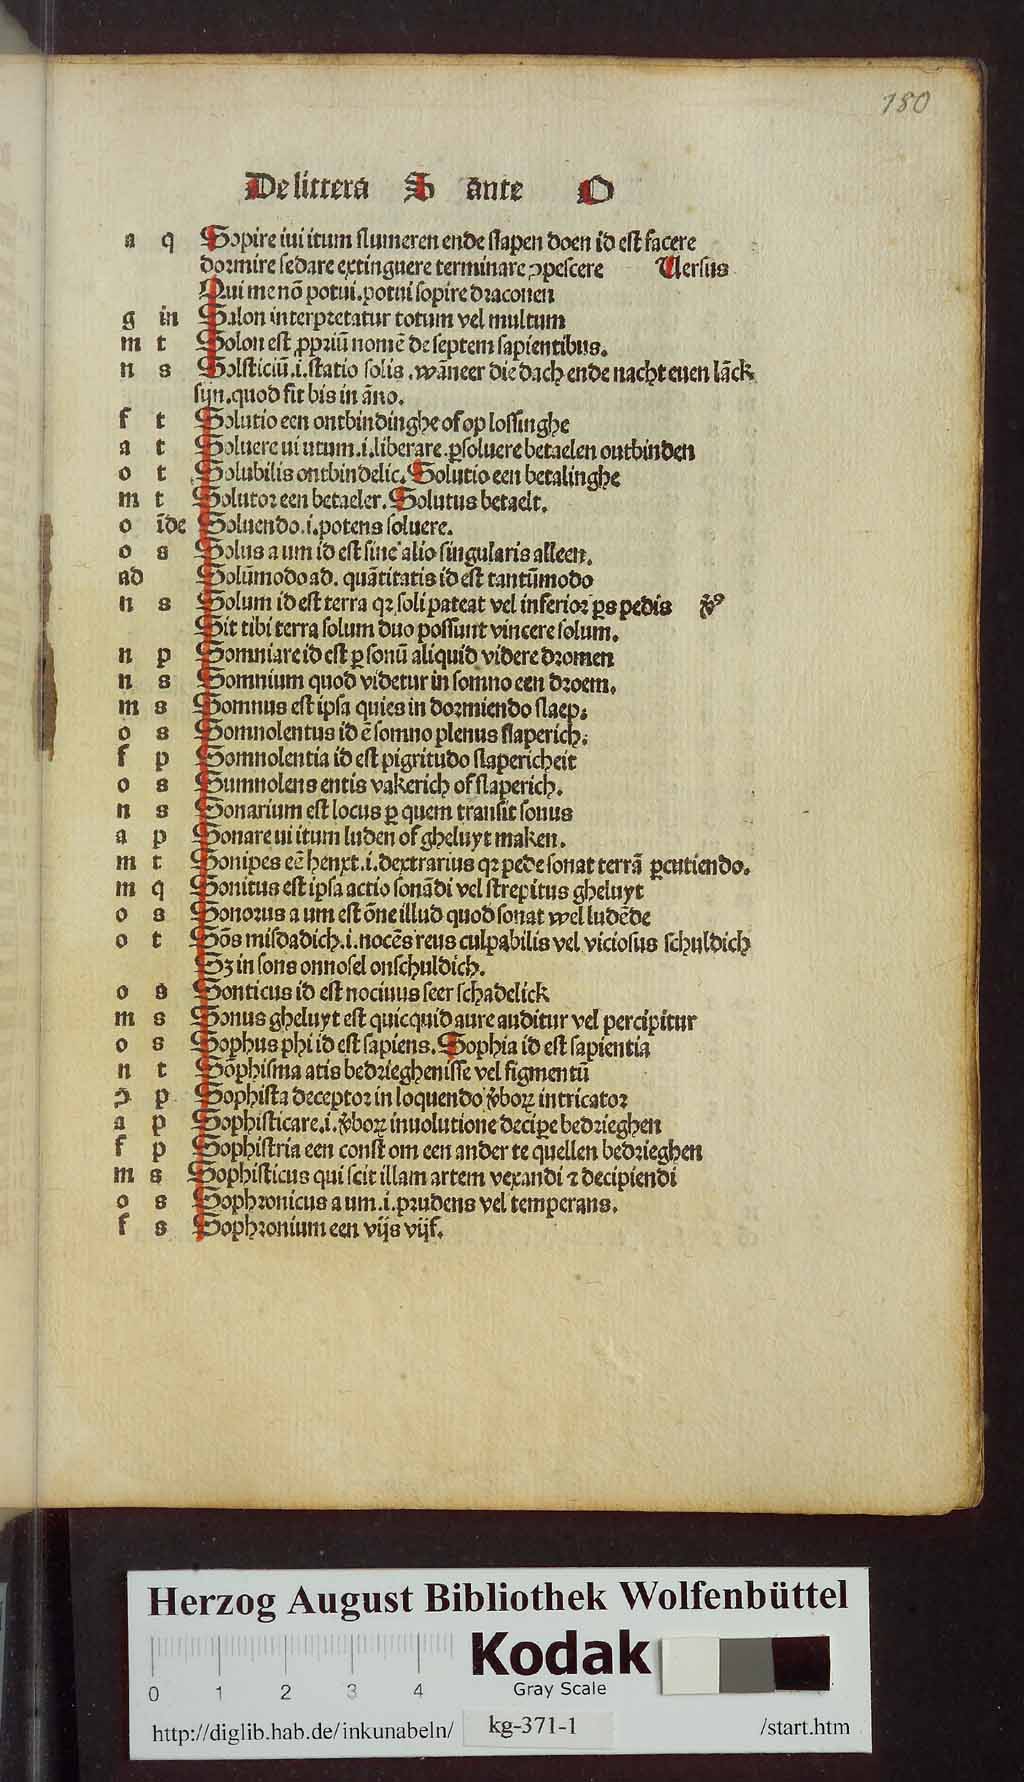 180
De littera S ante O
a q Sopire iui itum slumeren ende slapen doen id est facere
dormire sedare extinguere terminare ꝯpescere Versus
Qui me nō potui. potui sopire draconen
g in Salon interpretatur totum vel multum
m t Solon est ꝓpriū nomē de septem sapientibus.
n s Solsticiū .i. statio solis . wāneer die dach ende nacht euen lāck
sijn. quod fit bis in āno.
f t Solutio een ontbindinghe of op lossinghe
a t Soluere ui utum .i. liberare . ꝑsoluere betaelen ontbinden
o t Solubilis ontbindelic. Solutio een betalinghe
m t Solutor een betaeler. Solutus betaelt.
o īde Soluendo .i. potens soluere.
o s Solus a um id est sine alio singularis alleen.
ad Solūmodo ad. quātitatis id est tantūmodo
n s Solum id est terra qꝛ soli pateat vel inferior ꝑs pedis ꝟꝰ
Sit tibi terra solum duo possunt vincere solum.
n p Somniare id est ꝑ sonū aliquid videre dromen
n s Somnium quod videtur in somno een droem.
m s Somnus est ipsa quies in dormiendo slaep.
o s Somnolentus id ē somno plenus slaperich.
f p Somnolentia id est pigritudo slapericheit
o s Sumnolens entis vakerich of slaperich.
n s Sonarium est locus ꝑ quem transit sonus
a p Sonare ui itum luden of gheluyt maken.
m t Sonipes eē henxt .i. dextrarius qꝛ pede sonat terrā ꝑcutiendo.
m q Sonitus est ipsa actio sonādi vel strepitus gheluyt
o s Sonorus a um est ōne illud quod sonat wel ludēde
o t Sōs misdadich .i. nocēs reus culpabilis vel viciosus schuldich
Sꝫ in sons onnosel onschuldich.
o s Sonticus id est nociuus seer schadelick
m s Sonus gheluyt est quicquid aure auditur vel percipitur
o s Sophus phi id est sapiens. Sophia id est sapientia
n t Sōphisma atis bedrieghenisse vel figmentū
ꝯ p Sophista deceptor in loquendo ꝟboꝝ intricator
a p Sophisticare .i. ꝟboꝝ inuolutione deciꝑe bedrieghen
f p Sophistria een const om een ander te quellen bedrieghen
m s Sophisticus qui scit illam artem vexandi ⁊ decipiendi
o s Sophronicus a um .i. prudens vel temperans.
f s Sophronium een vijs vijf.
Herzog August Bibliothek Wolfenbüttel
Kodak
Gray Scale
0 1 2 3 4
http://diglib.hab.de/inkunabeln/ kg-371-1 /start.htm